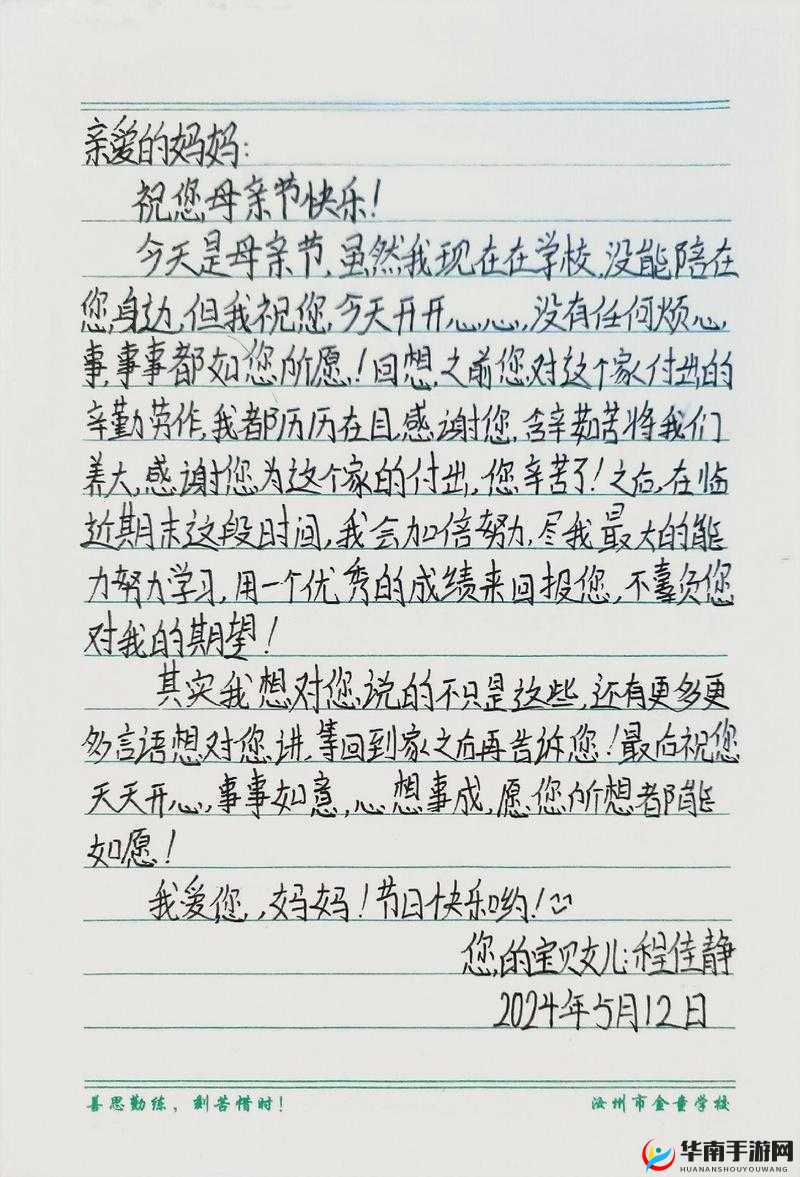 亲爱的妈妈:
祝您母亲节快乐!
今天是母亲节,虽然我现在在学校,没能陪在
您身边,但我祝您,今天开开心心,没有任何烦心
事,事事都如您所愿!回想之前您对这个家付出的
辛勤劳作,我都历历在目,感谢您,含辛茹苦将我们
养大,感谢您为这个家的付出,您辛苦了!之后,在临
近期末这段时间,我会加倍努力,尽我最大的能
力努力学习,用一个优秀的成绩来回报您,不辜负您
对我的期望!
其实我想对您说的不只是这些,还有更多更
多言语想对您讲,等回到家之后再告诉您!最后祝您
天天开心,事事如意,心想事成,愿您所想都能
如愿!
我爱您,妈妈!节日快乐哟!
您的宝贝女儿:程佳静
2024年5月12日
善思勤练,刻苦惜时!
汝州市金童学校
华南手游网
HUANANSHOUYOUWANG